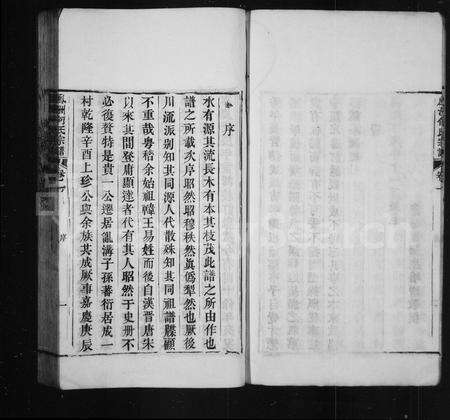 序
水有源其流長木有本其枝茂此譜之所由作也
譜之所載次序昭穆秩然眞僞犁然也厥後
川流派別知其同源人代散殊知其同祖譜牒顧
不重哉粤稽余始祖韓王易姓而後自漢晉唐朱
以來其間登庸顯達者代有其人昭然于史册不
必復贅特是貴一公遷居龍溝子孫蕃衍居成一
村乾隆辛酉上珍公與余族其成厥事嘉慶庚辰
氏宗譜
序
一